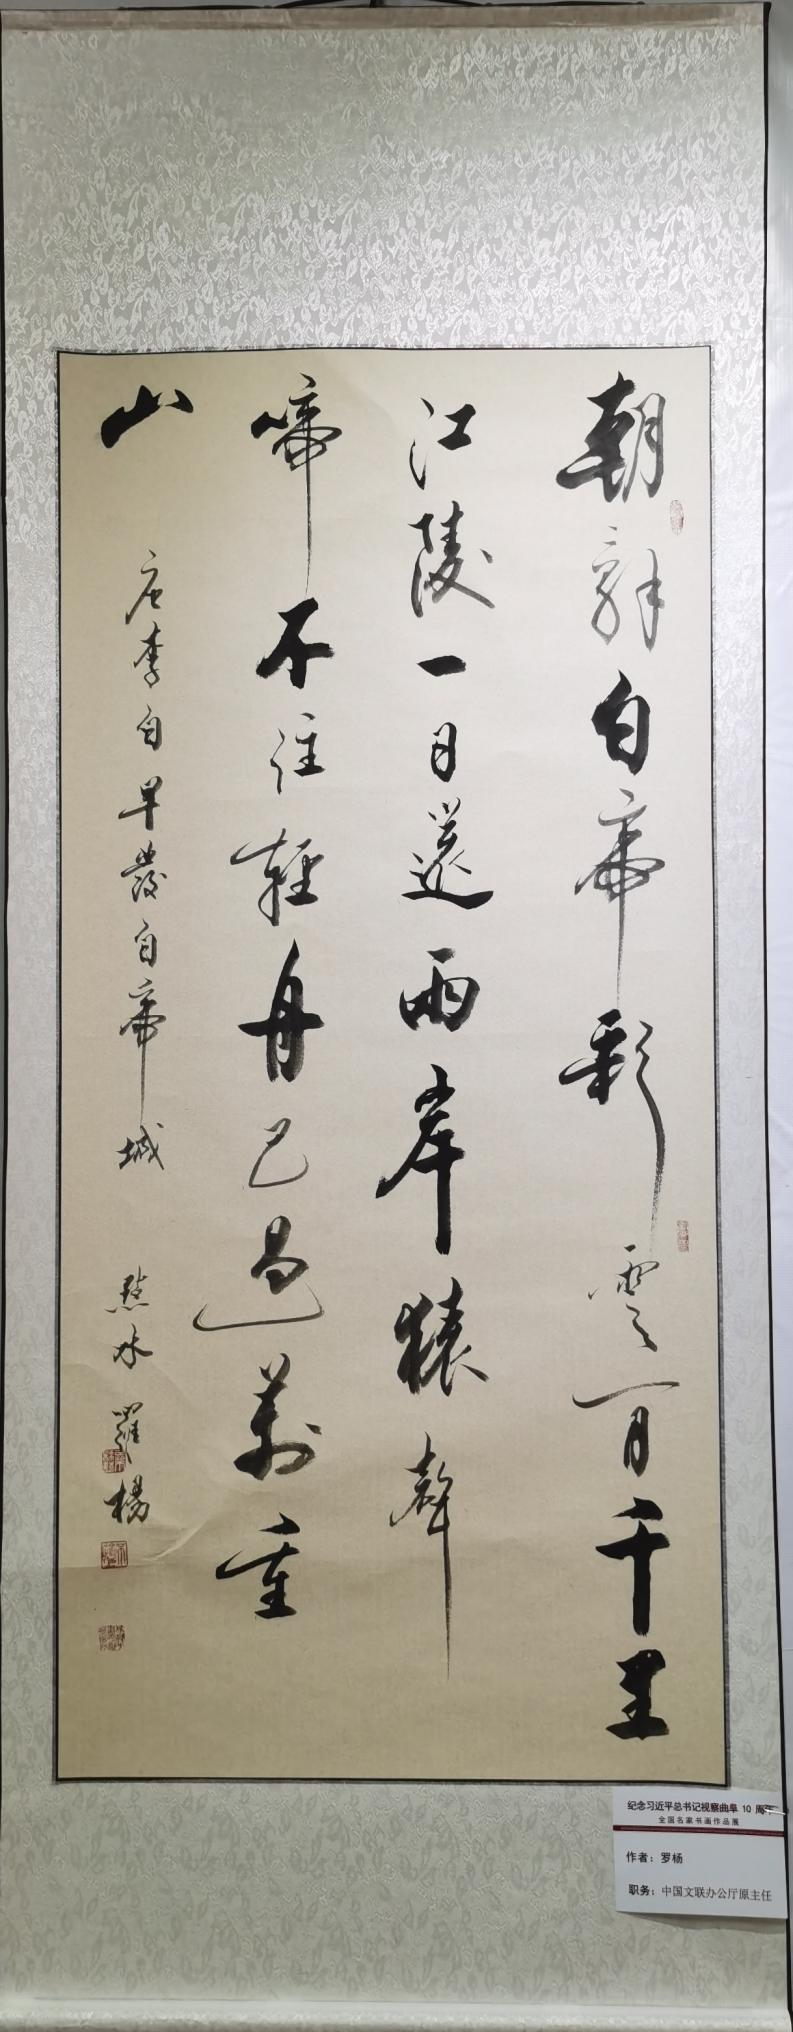 朝辭白帝彩雲間千里
江陵一日還兩岸猿聲
啼不住輕舟已過萬重
山
唐李白早發白帝城
點水 羅楊
纪念习近平总书记视察曲阜 10 周年
全国名家书画作品展
作者：罗杨
职务：中国文联办公厅原主任